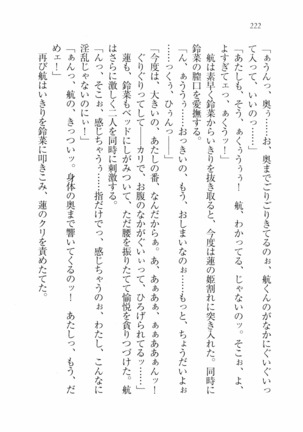 222
「ぁぅんっ、奥ぅ……お、奥までごりごりきてるのぉ、航くんのがなかにぐいぐいっ
て入って、いいのっ……」
「あたしも、そう、あくぅうぅぅ！　航、わかってる、じゃないのッ。そこぉ、よ、
よすぎてェっ、あくうッ──！」
　航は素早く鈴菜からいきりを抜き取ると、今度は蓮の姫割れに突き入れた。同時に
鈴菜の膣口を愛撫する。
「ん、あぅうぅ……おっきいの、もう、おしまいなのぉ……もっと、ちょうだいよぉ
……っくぅ、ひうんっ──！」
「今度は、大きいの、あたしの番、なんだからぁ。あ、あぁあぁ、ぁぁあああぁんッ！
ぐりぐりってして──カリで、お腹のなかがぐいって、ひろげられてるッ──！」
　蓮も、鈴菜もベッドにしがみついて、ただ腰を振りたてて愉悦を貪りつづけた。航
はさらに激しく二人を同時に刺激する。
「んっっ、そこぉ、感じちゃうぅ……指だけでっ、感じちゃうのぉ、わたし、こんなに
淫乱じゃないのにぃ！」
「ぁぁんっ、航の、きっついッ。身体の奥まで響いてくるのッ！　あたしっ、もう、だ
めェ！」
　再び航はいきりを鈴菜に叩きこみ、蓮のクリを責めたてた。